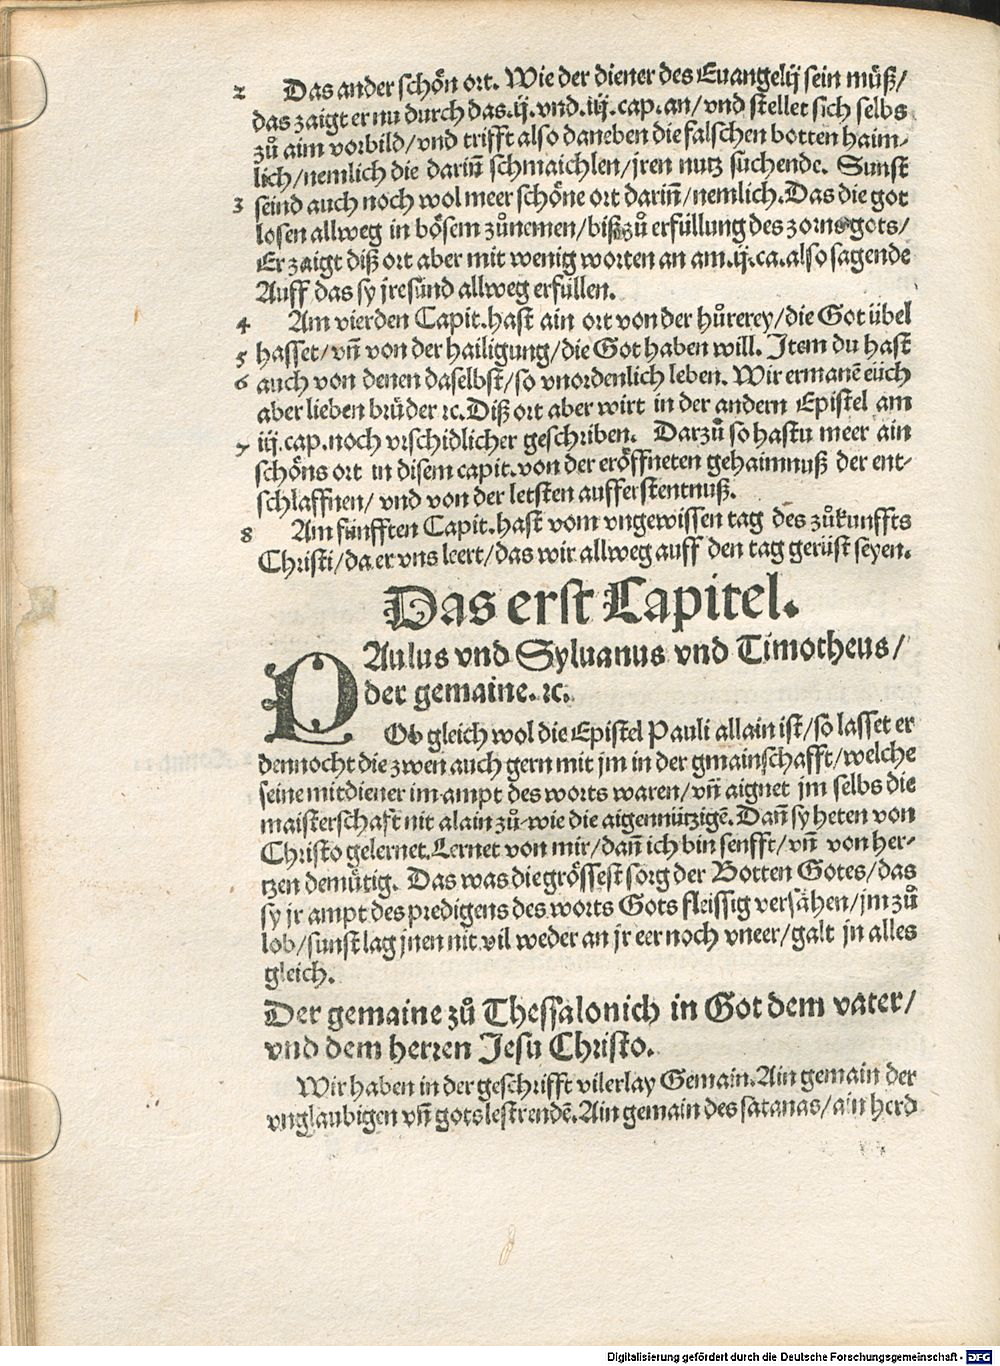 2 Das ander schoͤn ort. Wie der diener des Euangelij sein muͤß/
das zaigt er nu durch das .ij. vnd .iij. cap. an/ vnd stellet sich selbs
zuͦ aim vorbild/ vnd trifft also daneben die falschen botten haim-
lich/ nemlich die dariñ schmaichlen/ jren nutz suchende. Sunst
3 seind auch noch wol meer schoͤne ort dariñ/ nemlich. Das die got
losen allweg in boͤsem zuͦnemen/ biß zuͦ erfüllung des zorns gots/
Er zaigt diß ort aber mit wenig worten an am .ij. ca. also sagende
Auff das sy jre sünd allweg erfüllen.
4 Am vierden Capit. hast ain ort von der huͦrerey/ die Got übel
5 hasset/ vñ von der hailigung/ die Got haben will. Item du hast
6 auch von denen daselbst/ so vnordenlich leben. Wir ermanẽ eüch
aber lieben bruͤder ꝛc. Diß ort aber wirt in der andern Epistel am
7 iij. cap. noch vrschidlicher geschriben. Darzuͦ so hastu meer ain
schoͤns ort in disem capit. von der eroͤffneten gehaimnuß der ent-
schlaffnen/ vnd von der letsten aufferstentnuß.
8 Am fünfften Capit. hast vom vngewissen tag des zuͦkunffts
Christi/ da er vns leert/ das wir allweg auff den tag gerüst seyen.
Das erst Capitel.
PAulus vnd Syluanus vnd Timotheus/
der gemaine. ꝛc.
Ob gleich wol die Epistel Pauli allain ist/ so lasset er
dennocht die zwen auch gern mit jm in der gmainschafft/ welche
seine mitdiener im ampt des worts waren/ vñ aignet jm selbs die
maisterschaft nit alain zuͦ wie die aigennützigẽ. Dañ sy heten von
Christo gelernet. Lernet von mir/ dañ ich bin senfft/ vñ von her-
tzen demuͤtig. Das was die groͤssest sorg der Botten Gotes/ das
sy jr ampt des predigens des worts Gots fleissig versaͤhen/ jm zuͦ
lob/ sunst lag jnen nit vil weder an jr eer noch vneer/ galt jn alles
gleich.
Der gemaine zuͦ Thessalonich in Got dem vater/
vnd dem herren Jesu Christo.
Wir haben in der geschrifft vilerlay Gemain. Ain gemain der
vnglaubigen vñ gotslestrendẽ. Ain gemain des satanas/ ain herd
Digitalisierung gefördert durch die Deutsche Forschungsgemeinschaft - DFG